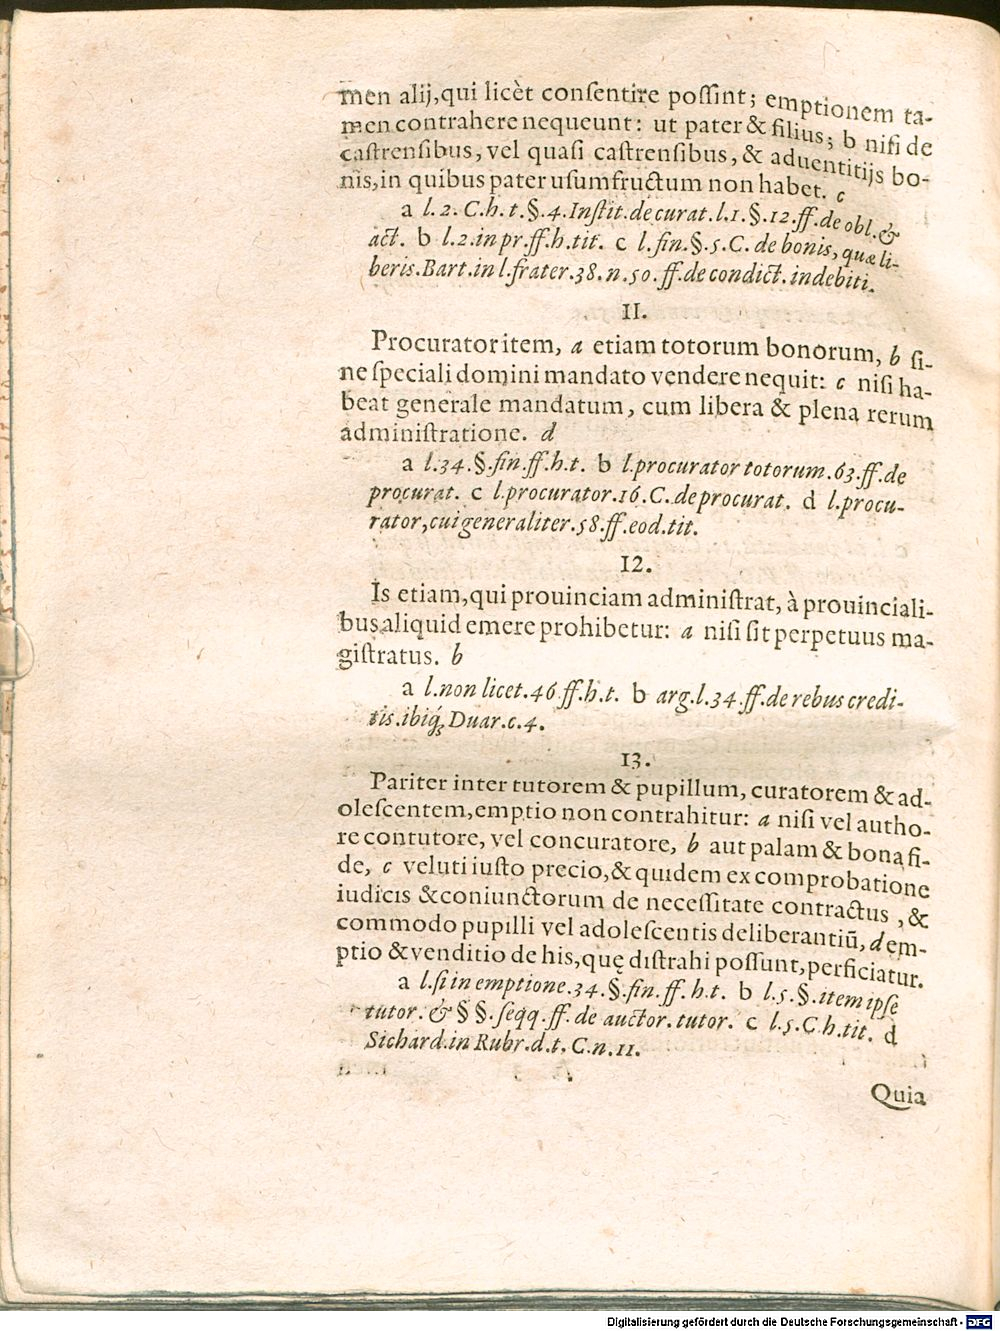 men alij,qui licèt conſentire poſſint; emptionem ta-
men contrahere nequeunt: ut pater & filius; b niſi de
caſtrenſibus, vel quaſi caſtrenſibus, & aduentitijs bo-
nis,in quibus pater uſumfructum non habet. c
a l.2. C.h.t.§.4.Inſtit.de curat.l.1.§.12.ff.de obl.&
act. b l.2.in pr.ff.h.tit. c l.fin.§.5.C. de bonis, quæ li-
beris.Bart.in l.frater.38.n.50.ff.de condict.indebiti.
II.
Procurator item, a etiam totorum bonorum, b ſi-
ne ſpeciali domini mandato vendere nequit: c niſi ha-
beat generale mandatum, cum libera & plena rerum
adminiſtratione. d
a l.34.§.fin.ff.h.t. b l.procurator totorum.63.ff.de
procurat. c l.procurator.16.C.de procurat. d l.procu-
rator,cui generaliter.58.ff.eod.tit.
12.
Is etiam,qui prouinciam adminiſtrat, à prouinciali-
bus aliquid emere prohibetur: a niſi ſit perpetuus ma-
giſtratus. b
a l.non licet.46.ff.h.t. b arg.l.34.ff.de rebus credi-
tis.ibiq́ꝫ Duar.c.4.
13.
Pariter inter tutorem & pupillum, curatorem & ad-
oleſcentem,emptio non contrahitur: a niſi vel autho-
re contutore, vel concuratore, b aut palam & bona fi-
de, c veluti iuſto precio,& quidem ex comprobatione
iudicis & coniunctorum de neceſſitate contractus, &
commodo pupilli vel adoleſcentis deliberantiũ, d em-
ptio & venditio de his,quę diſtrahi poſſunt,perficiatur.
a l.ſi in emptione.34.§.fin.ff.h.t. b l.5.§.item ipſe
tutor.& §§.ſeqq.ff.de auctor.tutor. c l.5.C.h.tit. d
Sichard.in Rubr.d.t.C.n.11.
Quia
Digitalisierung gefördert durch die Deutsche Forschungsgemeinschaft - DFG